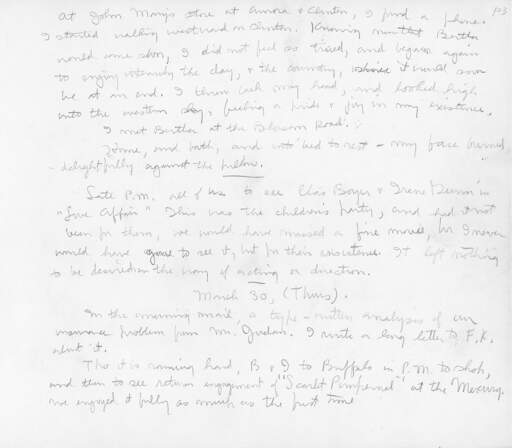 P3
At John Mary's store at Aurora & Clinton, I find a phone.
I started walking westward on Clinton. Knowing now that Bertha
would come soon, I did not feel so tired, and began again
to enjoy intensely the day, & the country, since it would soon
be at an end. I threw back my head, and looked high
into the western sky, feeling a pride & joy in my existence.
I met Bertha at the Blossom Road.
Home, and bath, and into bed to rest - my face burned
delightfully against the pillow.
Late P.M. all of us to see Chas Boyer & Irene Dunn in
"Love Affair" This was the children's party, and had it not
been for them, we would have missed a fine movie, for I never
would have gone to see it, but for their insistence. It left nothing
to be desired in the way of acting or direction.
March 30, (Thurs).
In the morning mail, a type-written analysis of an
insurance problem from Mr. Jordan. I write a long letter to F.K.
about it.
Tho it is raining hard, B & I to Buffalo in P.M. to shop,
and then to see return engagement of "Scarlet Pimpernel" at the Mercury.
We enjoyed it fully as much as the first time